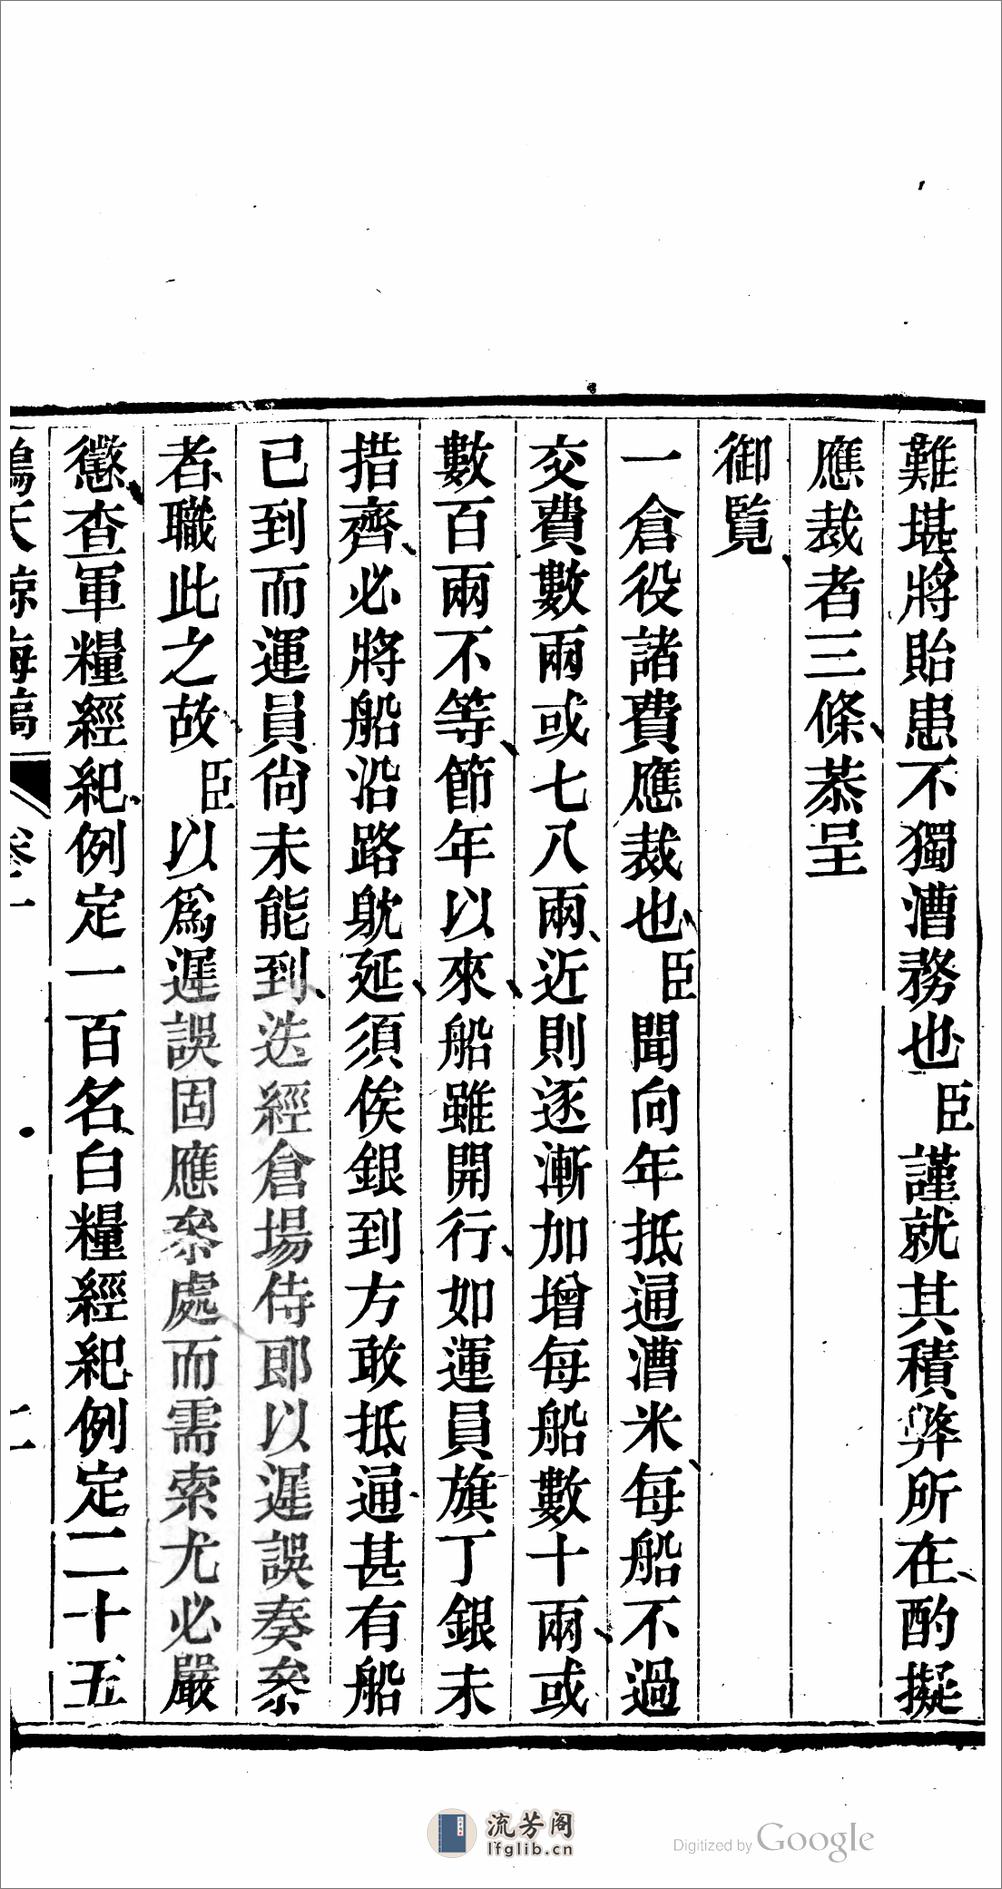 難堪將貽患不獨漕務也臣謹就其積弊所在酌擬
應裁者三條恭呈
御覧
一倉役諸費應裁也臣聞向年抵通漕米每船不過
交費數兩或七八兩近則逐漸加增每船數十兩或
數百兩不等節年以來船雖開行如運員旗丁銀未
措齊必將船沿路躭延須俟銀到方敢抵通甚有船
已到而運員尙未能到迭經倉場侍郎以遲誤奏叅
者職此之故臣以爲遲誤固應叅處而需索尤必嚴
懲查軍糧經紀例定一百名白糧經紀例定二十五
天 海 卷一 二
流芳阁
lfglib.cn
Digitized by Google